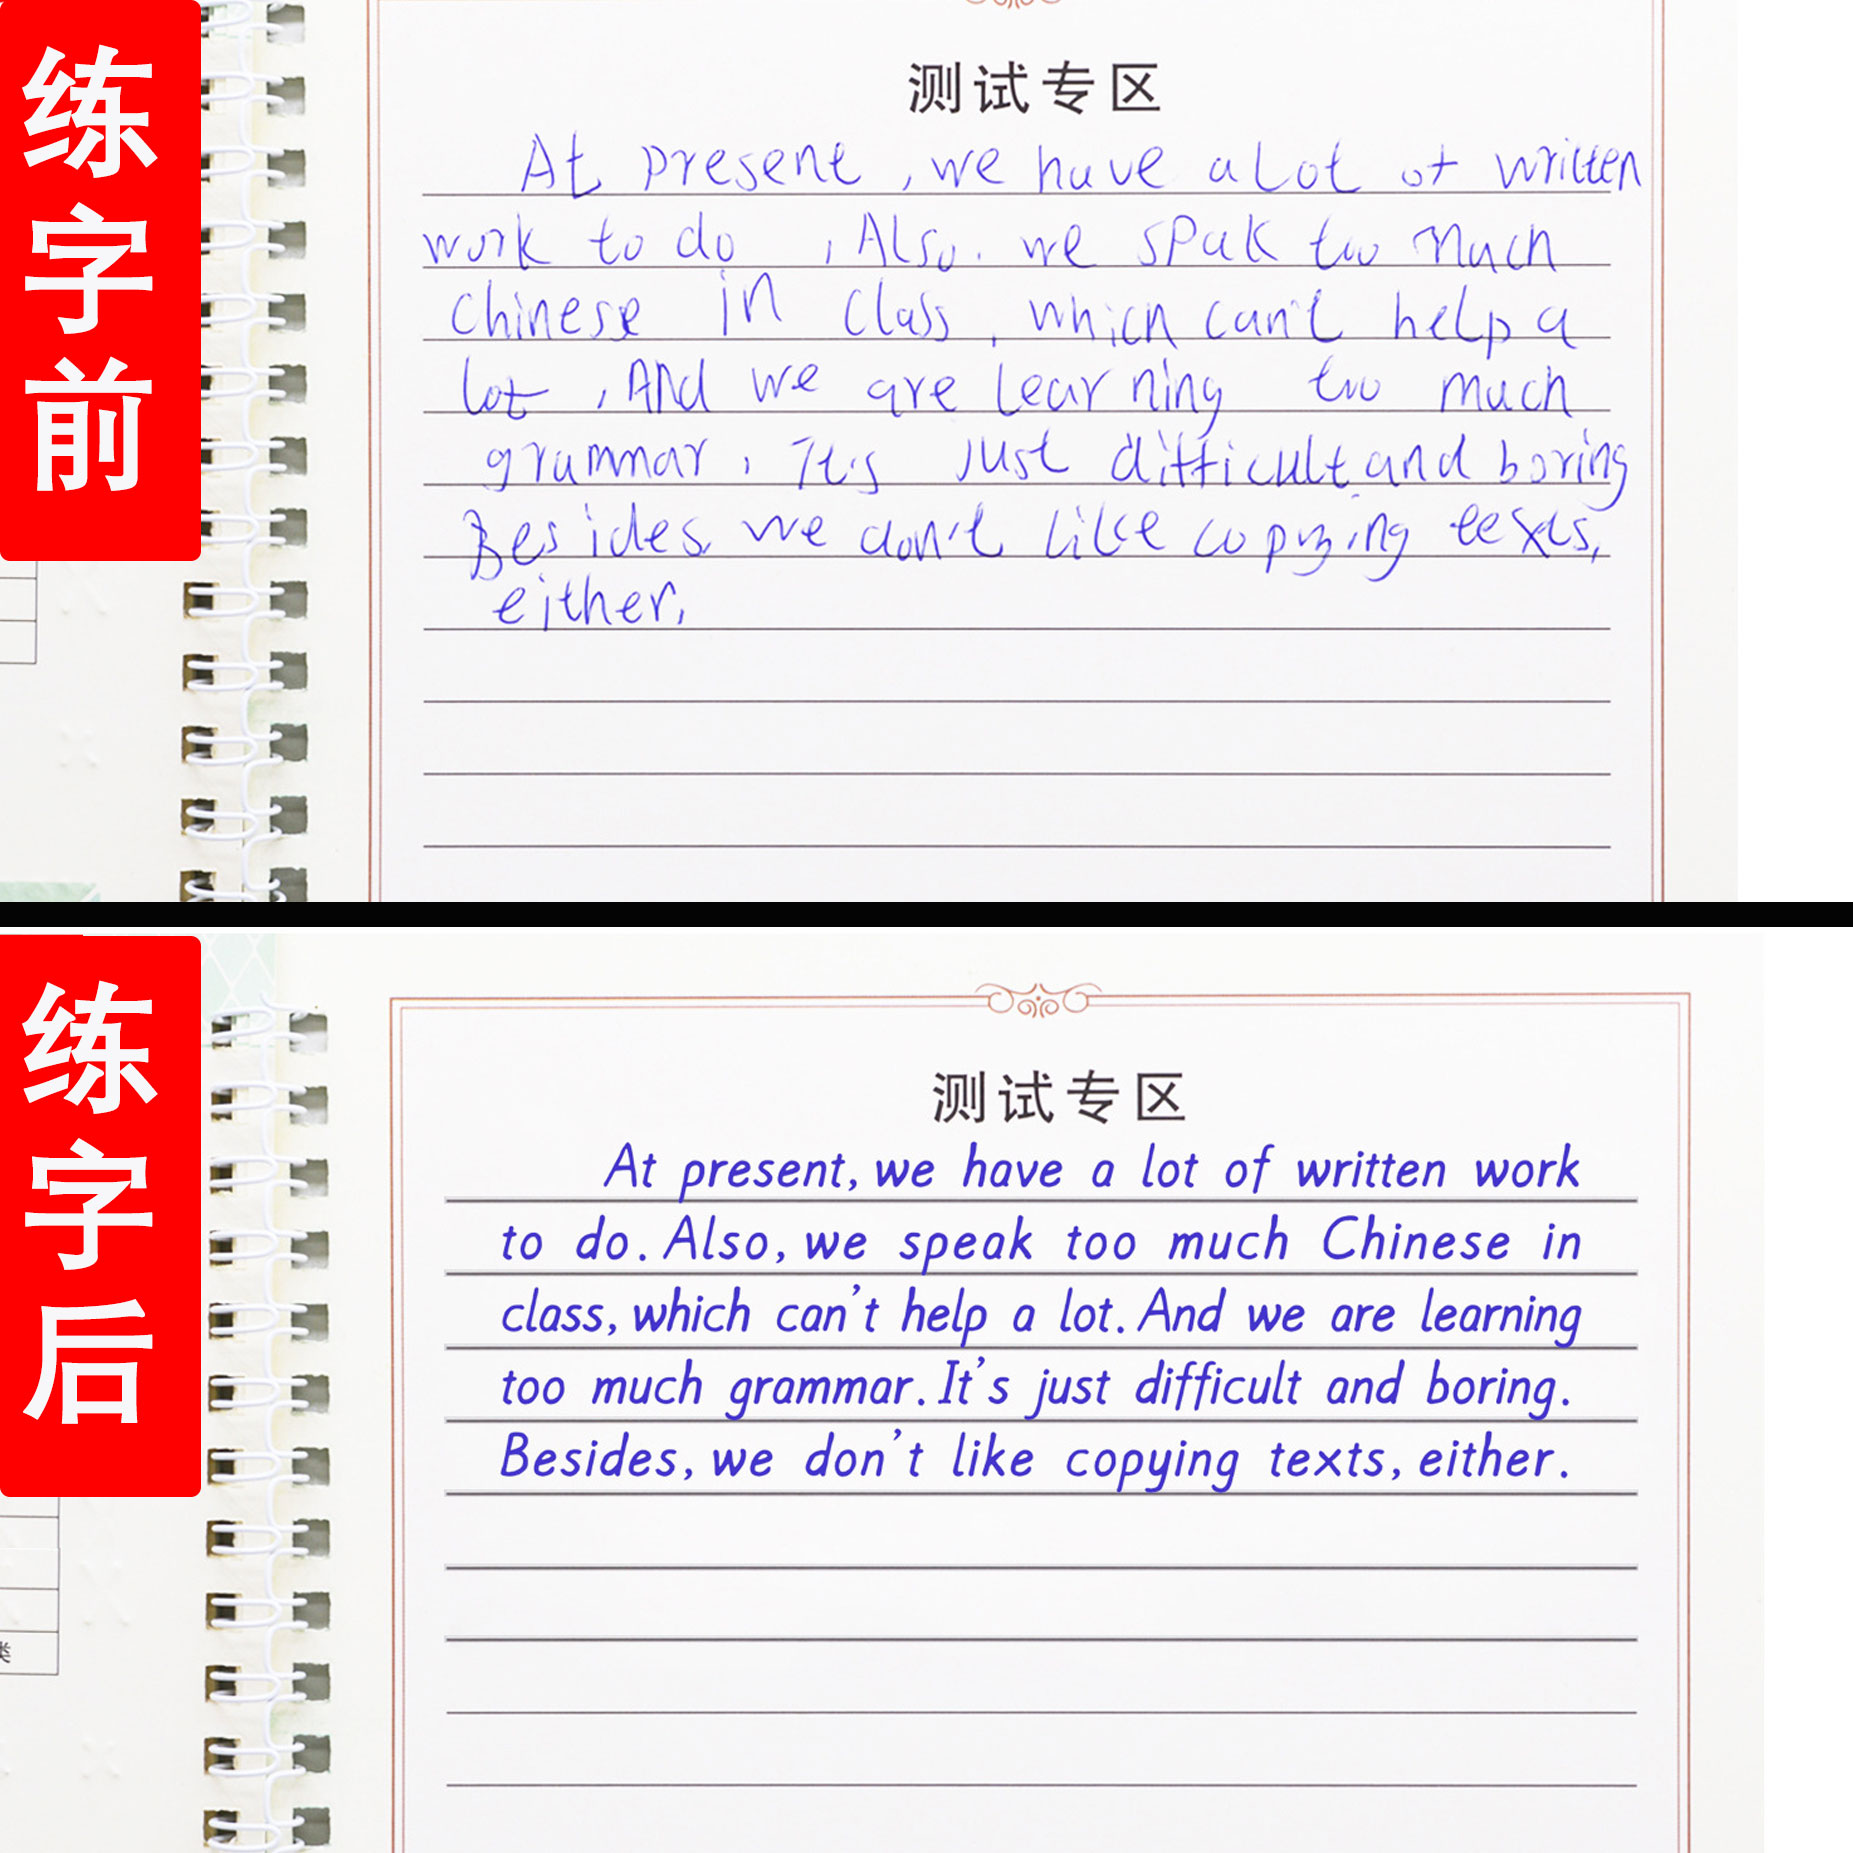 练字前
测试专区
At present, we have a lot of written
work to do , Also. we spak too much
chinese in class, which can't help a
lot , And we are learning too much
grammar, It's just difficult and boring
Besides, we don't like copying texts,
either,
练字后
测试专区
At present, we have a lot of written work
to do. Also, we speak too much Chinese in
class, which can't help a lot. And we are learning
too much grammar. It's just difficult and boring.
Besides, we don't like copying texts, either.
类